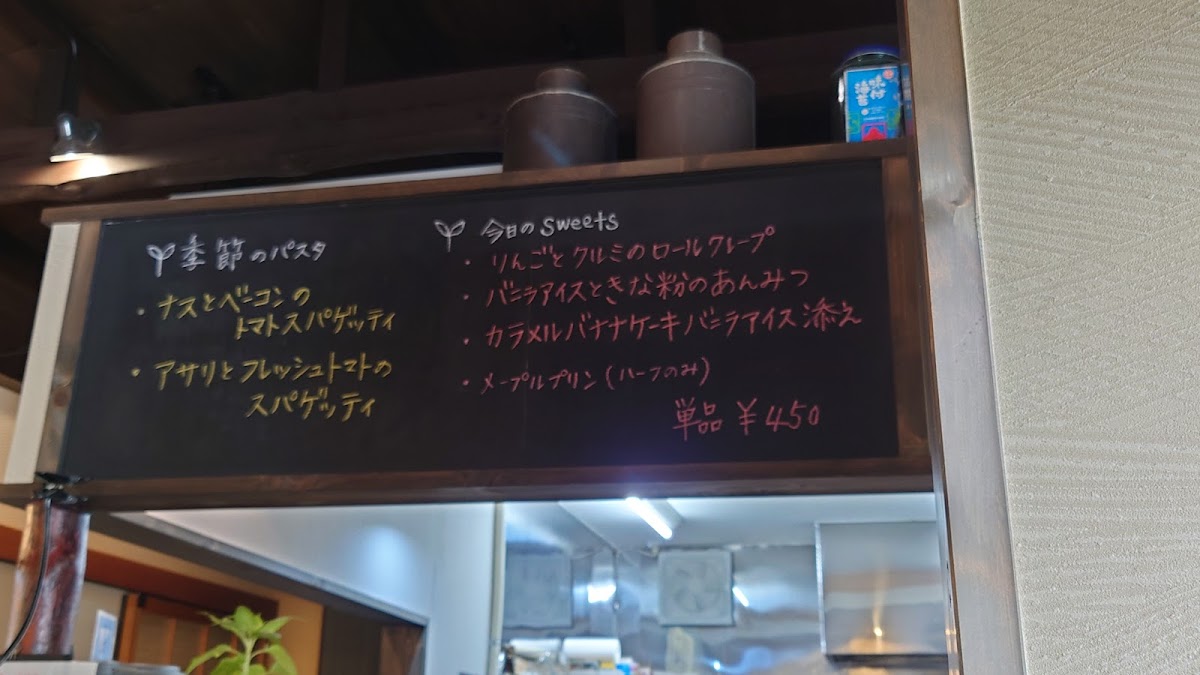 味付
海苔
季節のパスタ
・ナスとベーコンの
トマトスパゲッティ
・アサリとフレッシュトマトの
スパゲッティ
今日のsweets
・りんごとクルミのロールクレープ
・バニラアイスときな粉のあんみつ
・カラメルバナナケーキバニラアイス添え
・メープルプリン(ハーフのみ)
単品 ¥450